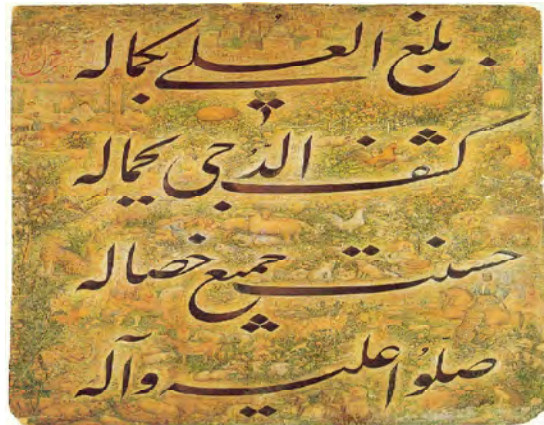 بلغ العلے بکماله
کشف الدّجی بجماله
حسنت جمیع خصاله
صلّوا علیه وآله